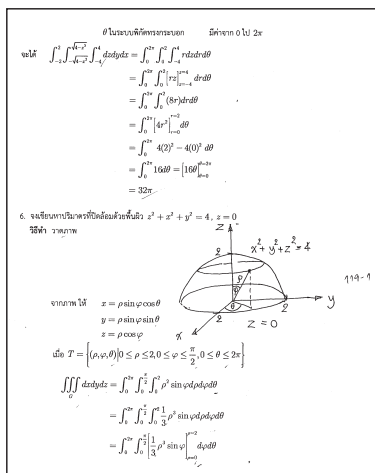 θ ในระบบพิกัดทรงกระบอก มีค่าจาก 0 ไป 2π
จะได้ ∫_{-2}^{2} ∫_{-√(4-x²)}^{√(4-x²)} ∫_{-4}^{4} dzdydx = ∫_0^{2π} ∫_0^2 ∫_{-4}^4 rdzdrdθ
= ∫_0^{2π} ∫_0^2 [rz]_{z=-4}^{z=4} drdθ
= ∫_0^{2π} ∫_0^2 (8r)drdθ
= ∫_0^{2π} [4r²]_{r=0}^{r=2} dθ
= ∫_0^{2π} 4(2)² − 4(0)² dθ
= ∫_0^{2π} 16dθ = [16θ]_{θ=0}^{θ=2π}
= 32π
6. จงเขียนหาปริมาตรที่ปิดล้อมด้วยพื้นผิว z² + x² + y² = 4, z = 0
วิธีทำ วาดภาพ
z
x² + y² + z² = 4
2
ρ
φ
θ
2
2
y
x
z = 0
119-1
จากภาพ ให้ x = ρ sin φ cos θ
y = ρ sin φ sin θ
z = ρ cos φ
เมื่อ T = {(ρ, φ, θ)|0 ≤ ρ ≤ 2, 0 ≤ φ ≤ π/2, 0 ≤ θ ≤ 2π}
∭_G dxdydz = ∫_0^{2π} ∫_0^{π/2} ∫_0^2 ρ² sin φdρdφdθ
= ∫_0^{2π} ∫_0^{π/2} ∫_0^2 1/3 ρ³ sin φdρdφdθ
= ∫_0^{2π} ∫_0^{π/2} [1/3 ρ³ sin φ]_{ρ=0}^{ρ=2} dφdθ